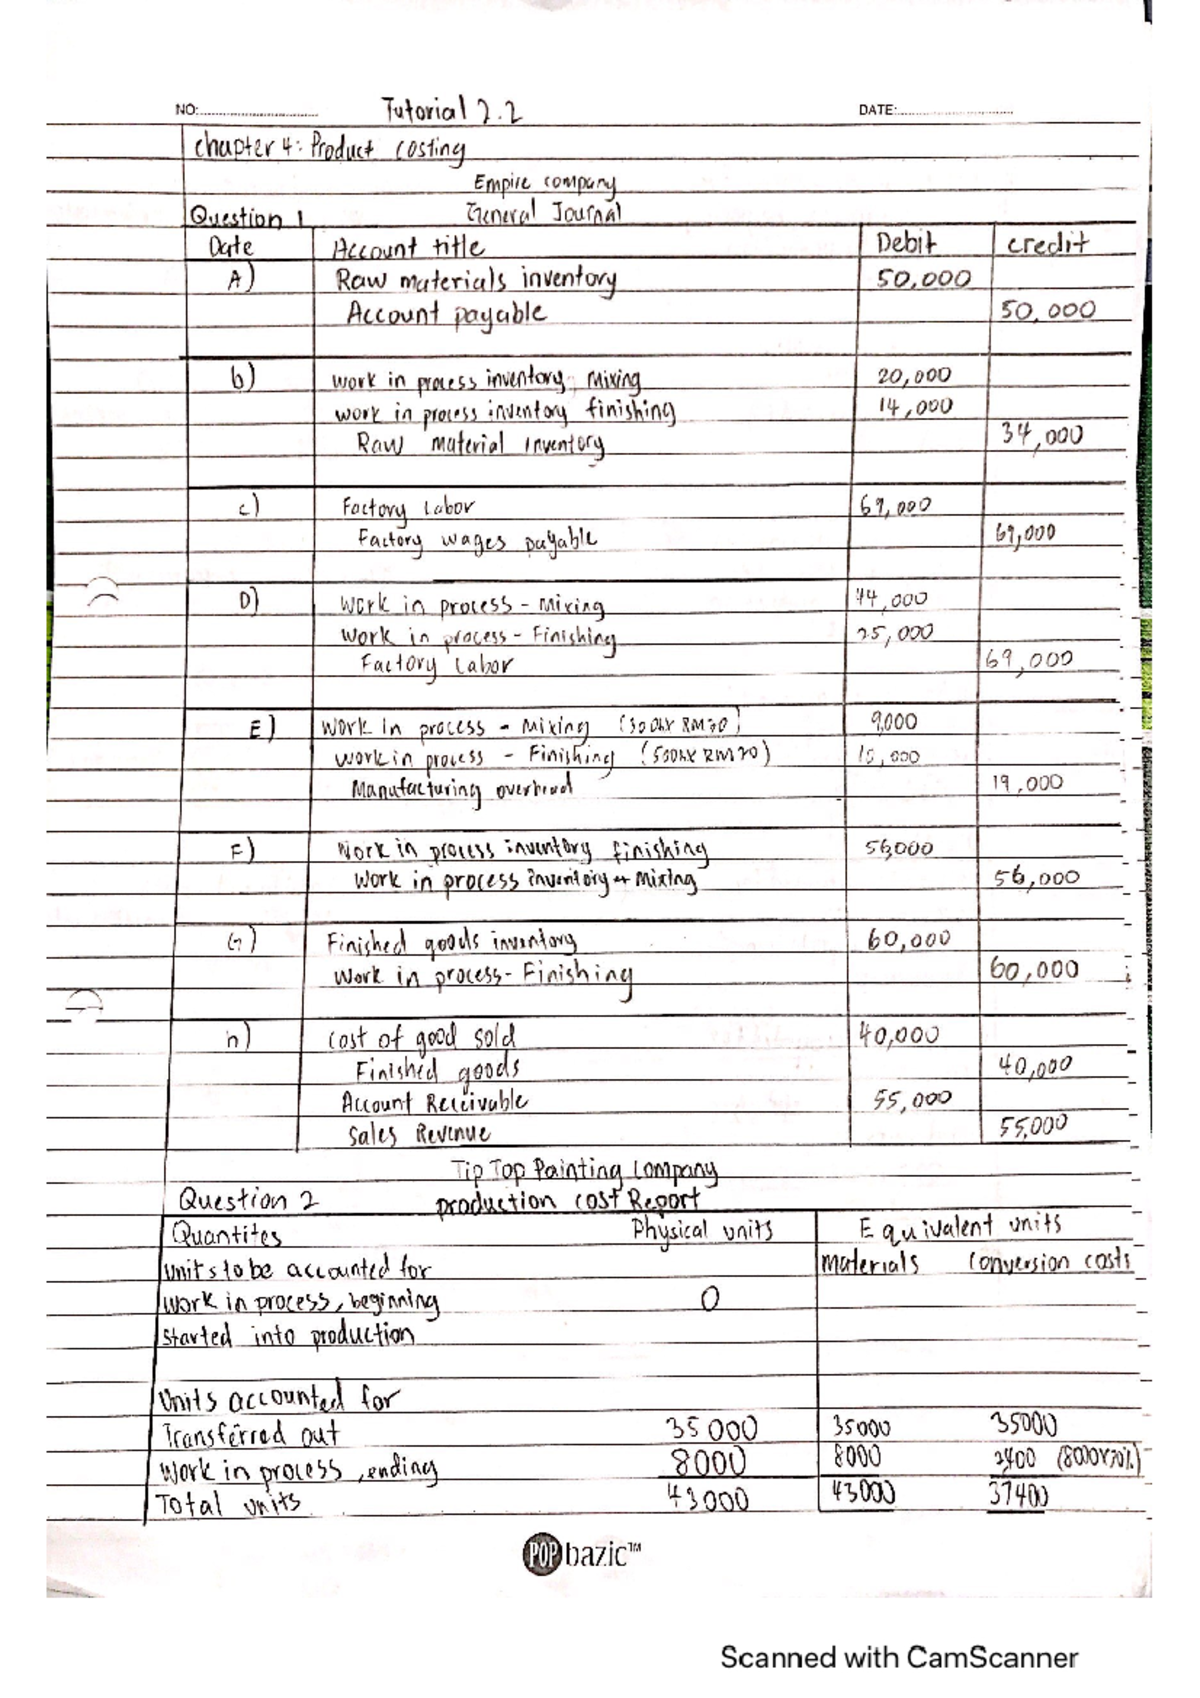 NO: Tutorial 2.2 DATE:
Chapter 4: Product costing
Empire company
Question 1 General Journal
Date Account title Debit credit
A) Raw materials inventory 50,000
Account payable 50,000
b) Work in process inventory, Mixing 20,000
work in process inventory finishing 14,000
Raw material Inventory 34,000
c) Factory Labor 69,000
Factory wages payable 69,000
D) Work in process - Mixing 44,000
Work in process - Finishing 25,000
Factory Labor 69,000
E) Work In process - Mixing 9,000
work in process - Finishing
Manufacturing overhead 19,000
F) Work in process inventory finishing 56,000
Work in process inventory Mixing 56,000
G) Finished goods inventory 60,000
Work in process - Finishing 60,000
h) Cost of good sold 40,000
Finished goods 40,000
Account Receivable 55,000
Sales Revenue 55,000
Tip Top Painting Company
Question 2 production cost Report
Quantites Physical units Equivalent units
Units to be accounted for materials Conversion costs
Work in process, beginning 0
Started into production
Units accounted for
Transferred out 35000 35000 35000
Work in process, ending 8000 8000 2400
Total units 43000 43000 37400
POP bazic™
Scanned with CamScanner